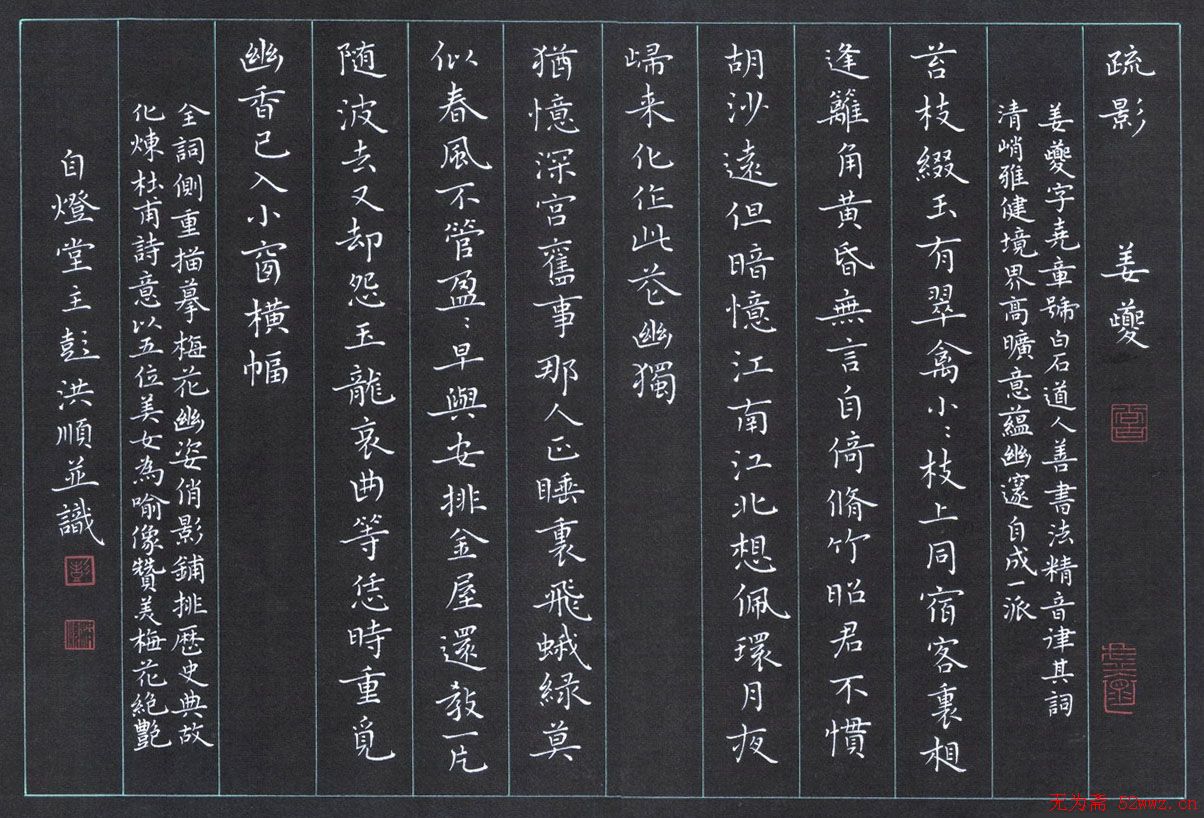 疏影 姜夔
姜夔字堯章號白石道人善書法精音律其詞
清峭雅健境界高曠意蘊幽邃自成一派
苔枝綴玉有翠禽小〻枝上同宿客裏相
逢籬角黃昏無言自倚脩竹昭君不慣
胡沙遠但暗憶江南江北想佩環月夜
歸来化作此花幽獨
猶憶深宮舊事那人正睡裏飛蛾綠莫
似春風不管盈〻早與安排金屋還教一片
随波去又却怨玉龍哀曲等恁時重覓
幽香已入小窗橫幅
全詞側重描摹梅花幽姿俏影鋪排歷史典故
化煉杜甫詩意以五位美女為喻像贊美梅花絕艷
自燈堂主彭洪順並識
无为斋 52wwz.cn